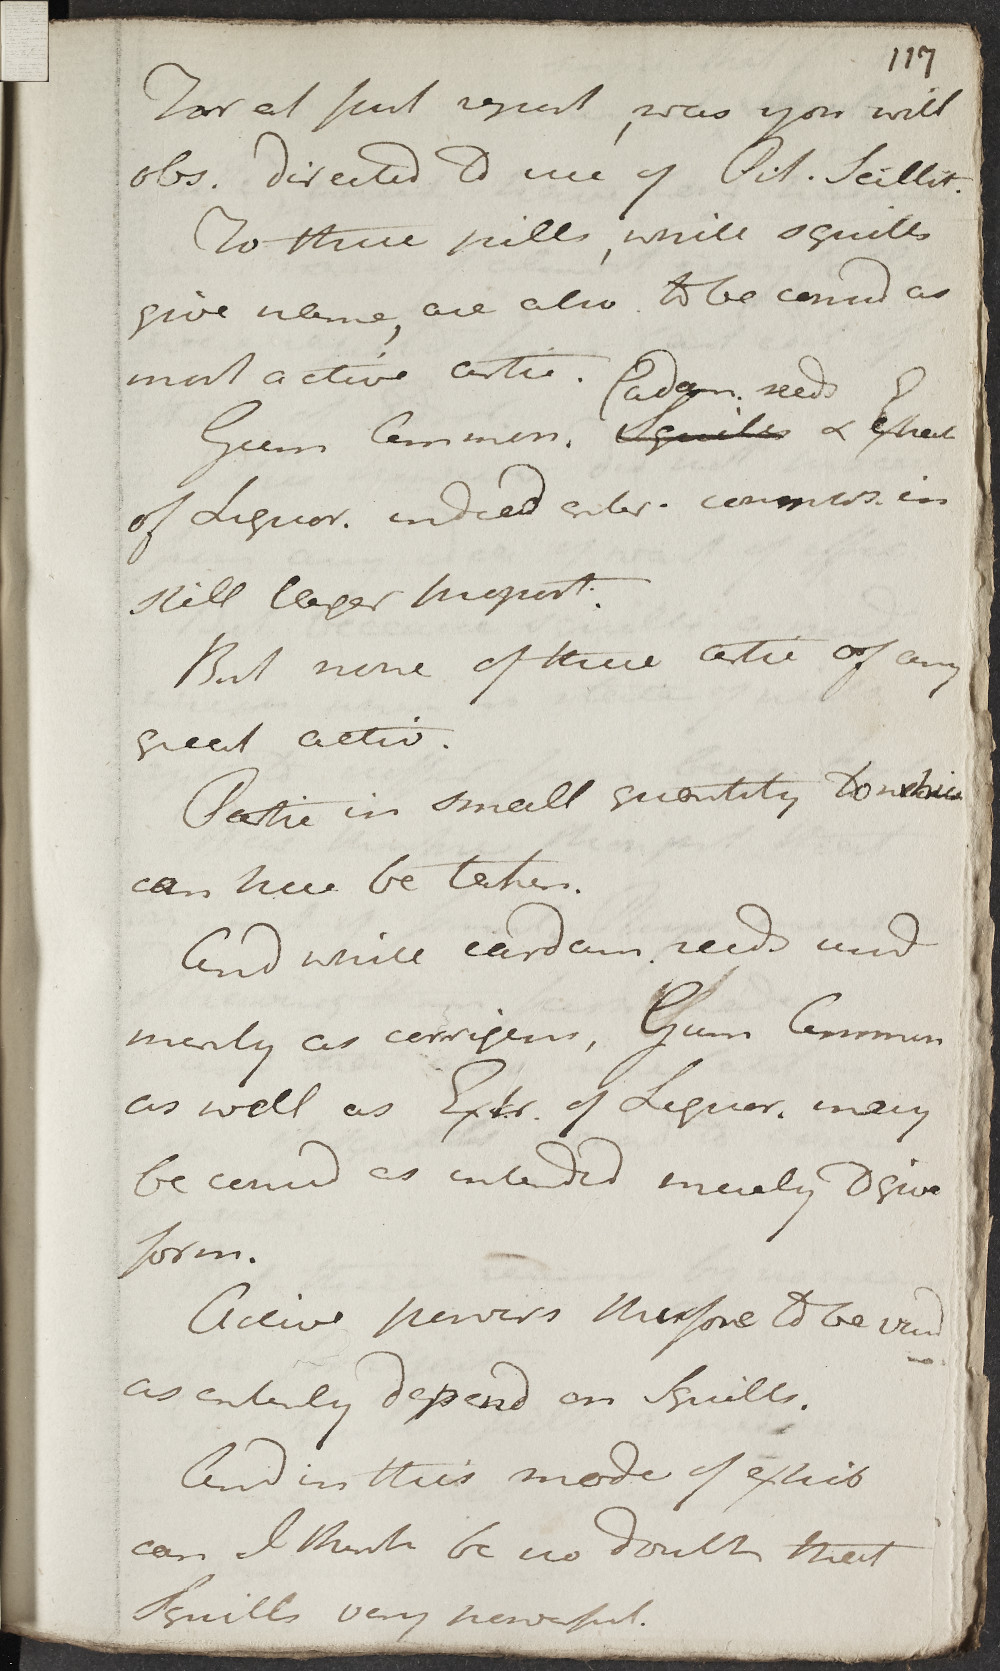 117
For at first report, was you will
obs. directed to use of Pil. Scillit.
To these pills, while squills
give name, are also to be consid as
most active artic.
Cadam. seeds
Gum Ammon. Squills & Extract
of Liquor. indeed enter. commos. in
still larger proport.
But none of these artic of any
great activ.
Partic in small quantity to which
can here be taken.
And while cardam. seeds used
merely as corrigens, Gum Ammon
as well as Extr. of Liquor. may
be consid as intended merely to give
form.
Active powers therefore to be view'd
as entirely depend on Squills.
And in this mode of exhib
can I think be no doubt that
Squills very powerful.